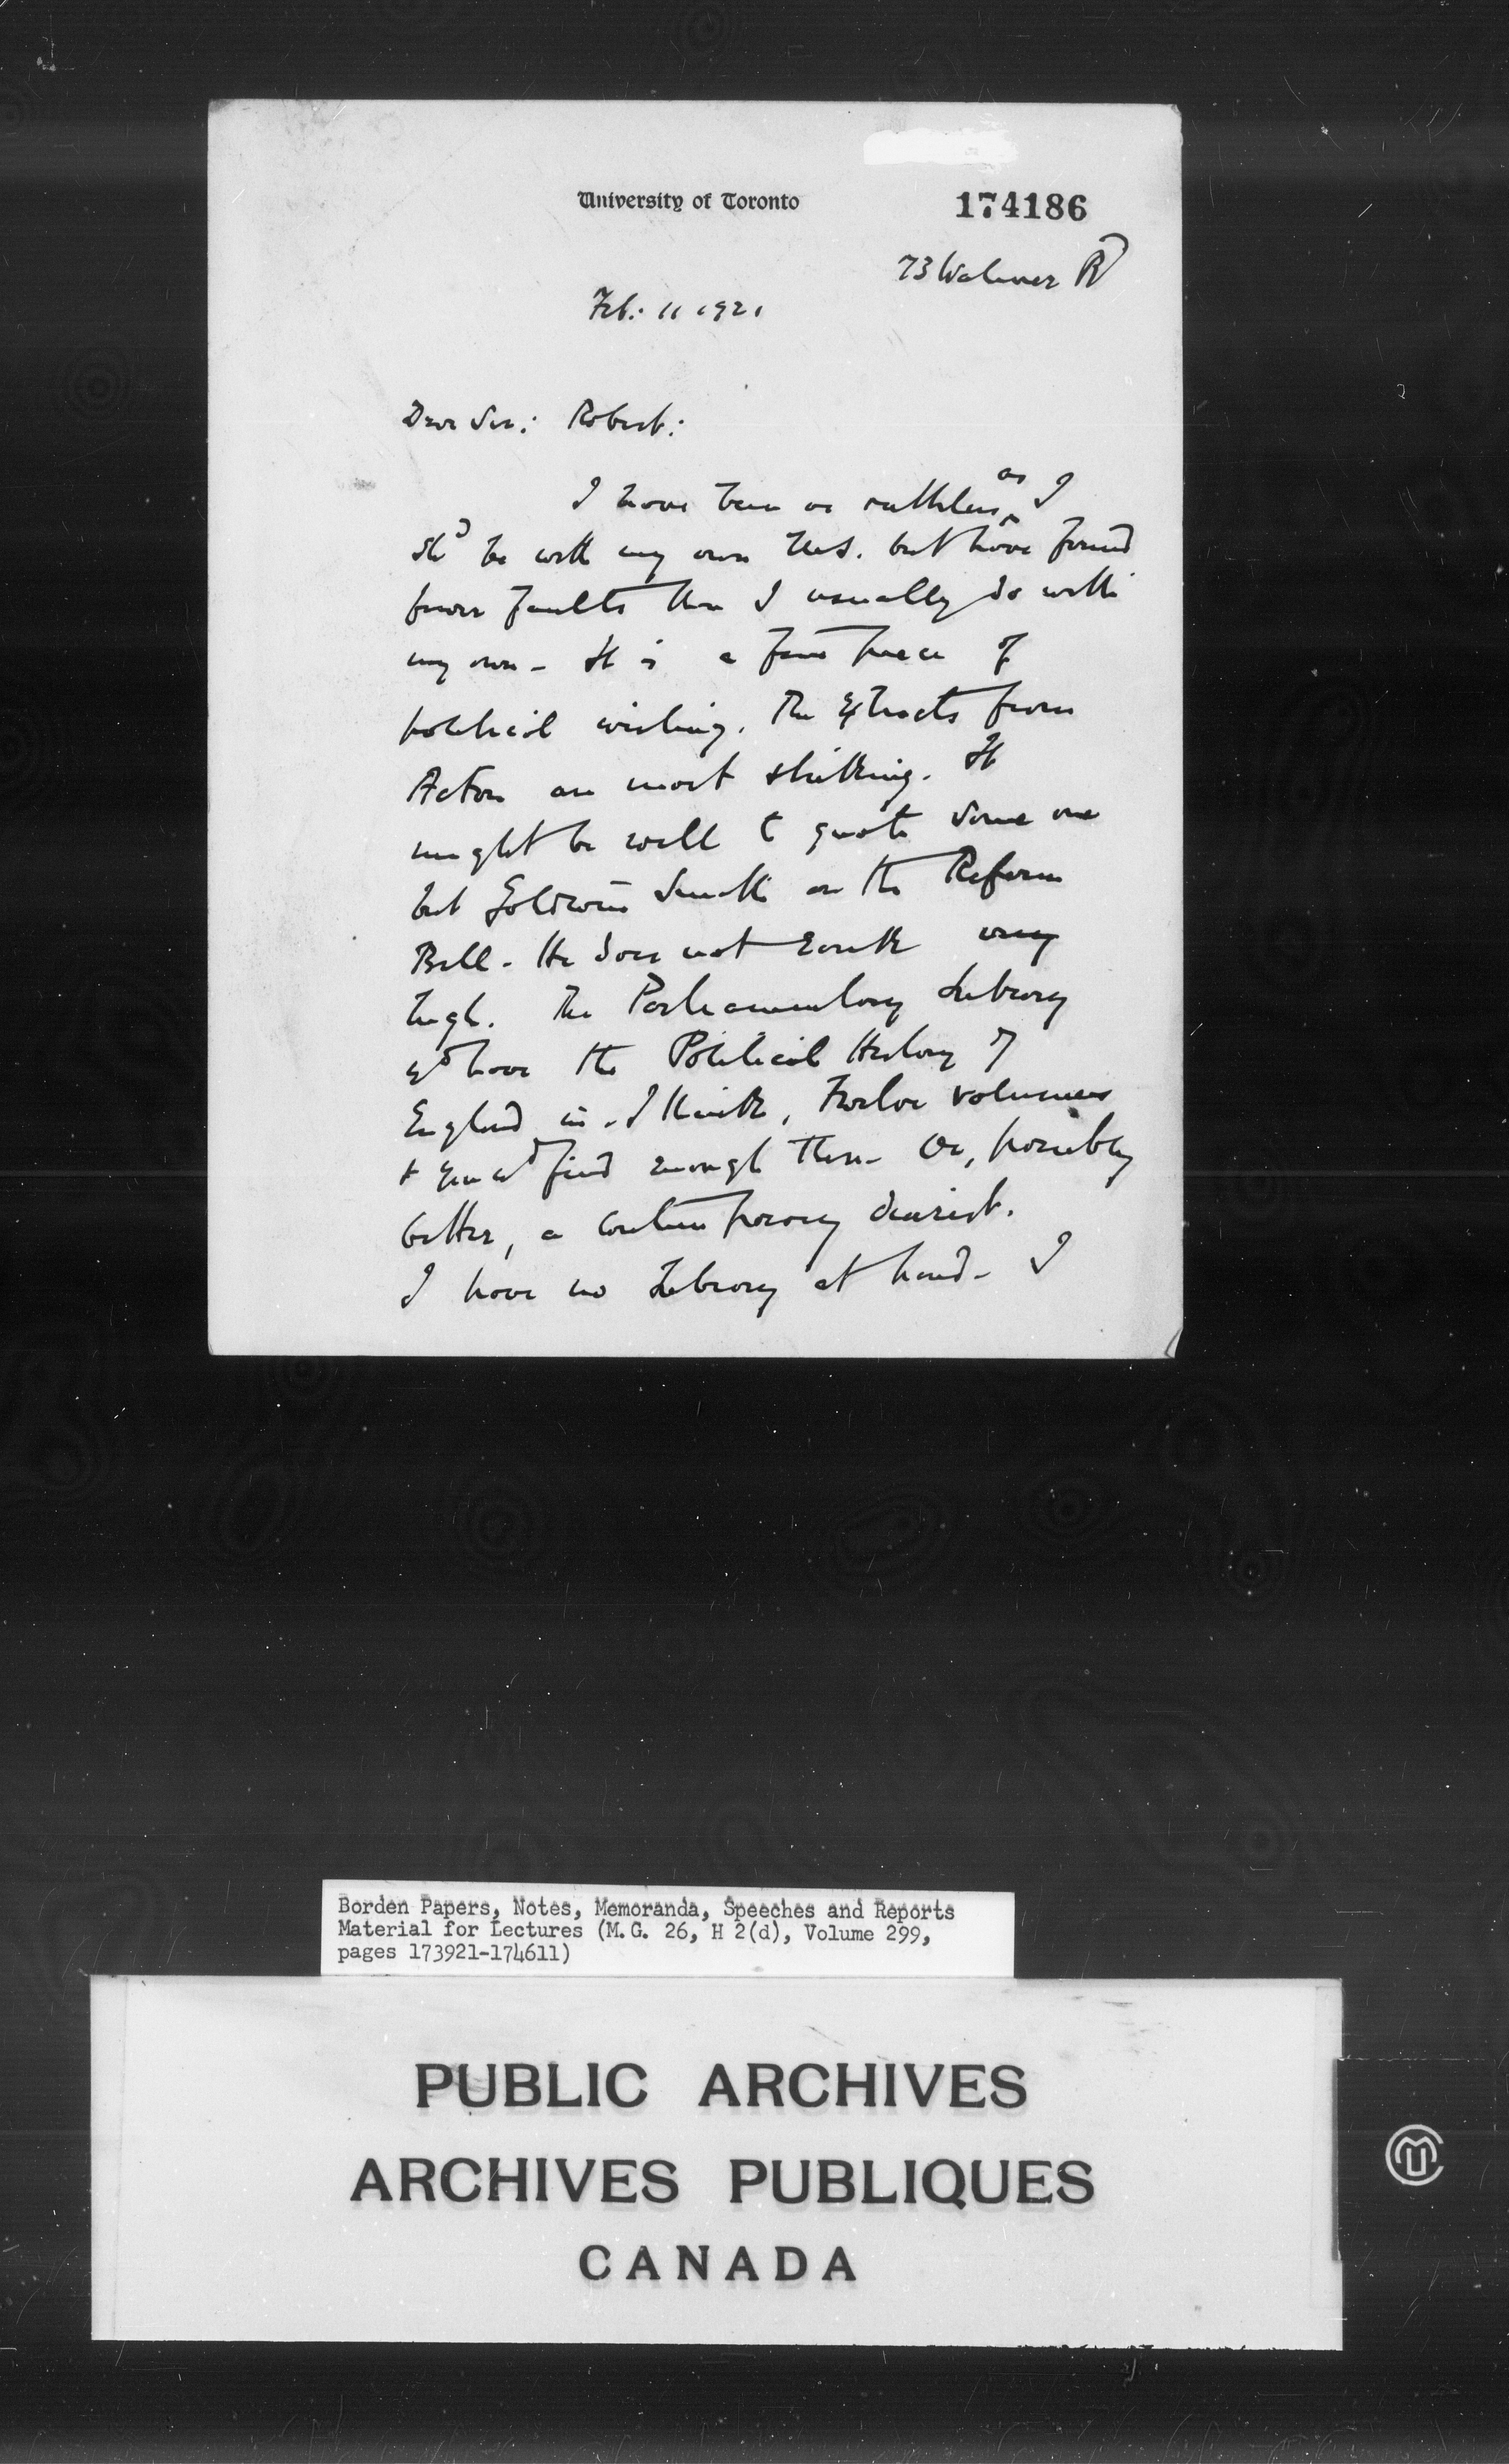 University of Toronto
174186
73 Walmer Rd
Feb. 11 1921
Dear Sir: Robert:
I have been as ruthless as I
shd be with my own MS. but have found
fewer faults than I usually do with
my own - It is a fine piece of
political writing. The extracts from
Acton are most striking. It
might be well to quote some one
but Goldwin Smith on the Reform
Bill - He does not rank very
high. The Parliamentary Library
wd have the Political History of
England in - I think, Twelve volumes
& you wd find enough there - Or, possibly
better, a contemporary
I have no Library at hand - I
Borden Papers, Notes, Memoranda, Speeches and Reports
Material for Lectures (M.G. 26, H 2(d), Volume 299,
pages 173921-174611)
PUBLIC ARCHIVES
ARCHIVES PUBLIQUES
CANADA